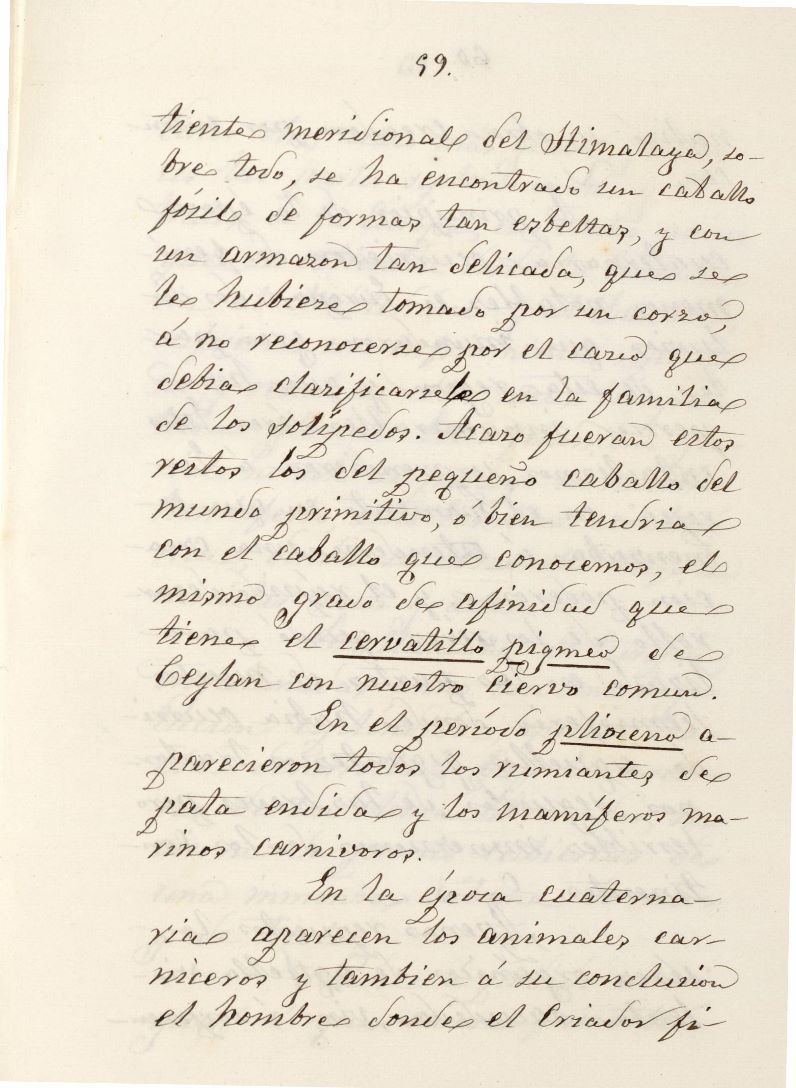 59.
tiente meridional del Himalaya, so-
bre todo, se ha encontrado un caballo
fósil de formas tan esbeltas, y con
un armazon tan delicada, que se
le hubiese tomado por un corzo,
á no reconocerse por el casco que
debia clasificarsele en la familia
de los solípedos. Acaso fueran estos
restos los del pequeño caballo del
mundo primitivo, ó bien tendria
con el caballo que conocemos, el
mismo grado de afinidad que
tiene el cervatillo pigmeo de
Ceylan con nuestro ciervo comun.
En el período plioceno a-
parecieron todos los rumiantes de
pata endida y los mamíferos ma-
rinos carnivoros.
En la época cuaterna-
ria aparecen los animales car-
niceros y tambien á su conclusion
el hombre donde el Criador fi-